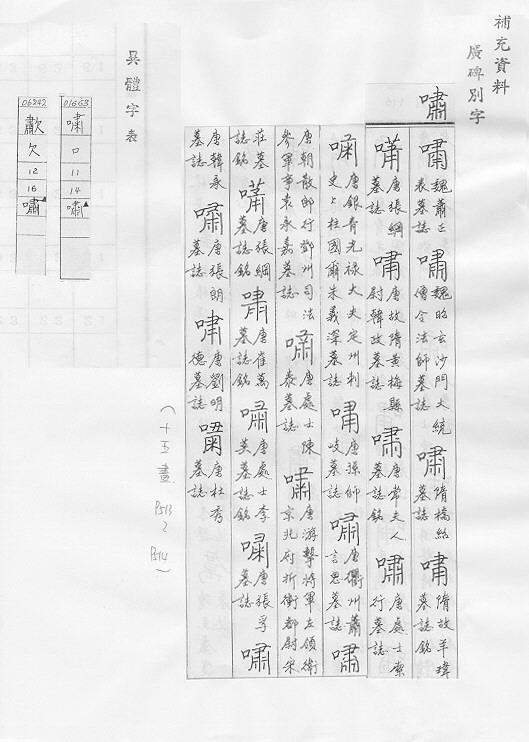 補充資料
廣碑別字
嘯
嘯 魏蕭正表墓誌 嘯 魏昭玄沙門大統僧令法師墓誌 嘯 隋橋紹墓誌 嘯 隋故羊瑋墓誌銘
嘯 唐張綱墓誌 嘯 唐故隋黃梅縣尉韓政墓誌 嘯 唐常夫人墓誌銘 嘯 唐處士索行墓誌
嘯 唐銀青光祿大夫定州刺史上柱國爾朱義深墓誌 嘯 唐孫師岐墓誌 嘯 唐衢州蕭言思墓誌 嘯
唐朝散郎行鄧州司法參軍事袁永嘉墓誌 嘯 唐處士陳泰墓誌 嘯 唐游擊將軍左領衛京兆府折衝都尉宋
莊墓誌銘 嘯 唐張綱墓誌銘 嘯 唐崔萬墓誌銘 嘯 唐處士李英墓誌銘 嘯 唐張孚墓誌 嘯
唐韓永墓誌 嘯 唐張朗墓誌 嘯 唐劉明德墓誌 嘯 唐杜秀墓誌
(十五畫 P513~P514)
異體字表
01663
嘯
口
11
14
嘯
06242
歗
欠
12
16
嘯